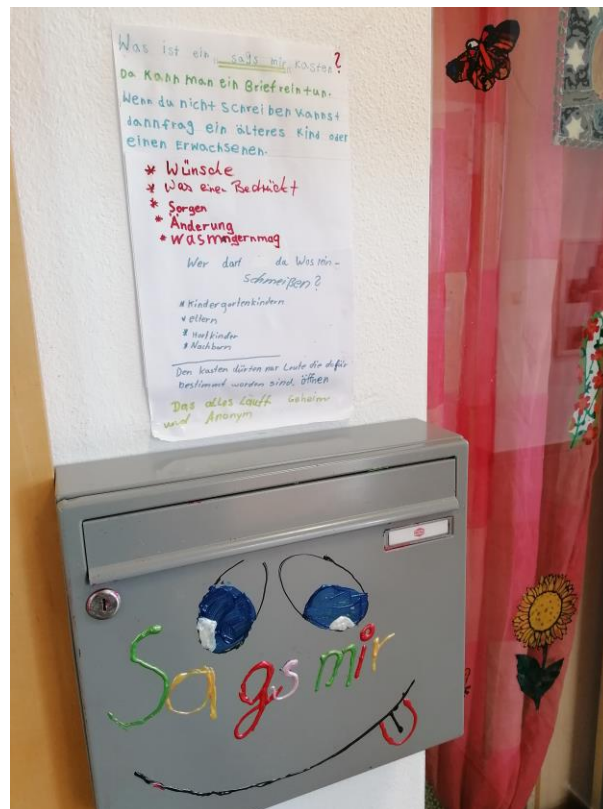 Was ist ein „sags mir" Kasten?
Da Kann man ein Brief reintun.
Wenn du nicht schreiben kannst
dannfrag ein älteres Kind oder
einen Erwachsenen.
* Wünsche
* Was einen Bedrückt
* Sorgen
* Änderung
* was mangernmag
Wer darf da Was rein-
schmeißen?
* Kindergartenkindern
* eltern
* Hortkinder
* Nachbarn
Den Kasten dürfen nur Leute die dafür
bestimmt worden sind, öffnen
Das alles Läuft Geheim
und Anonym
Sags mir